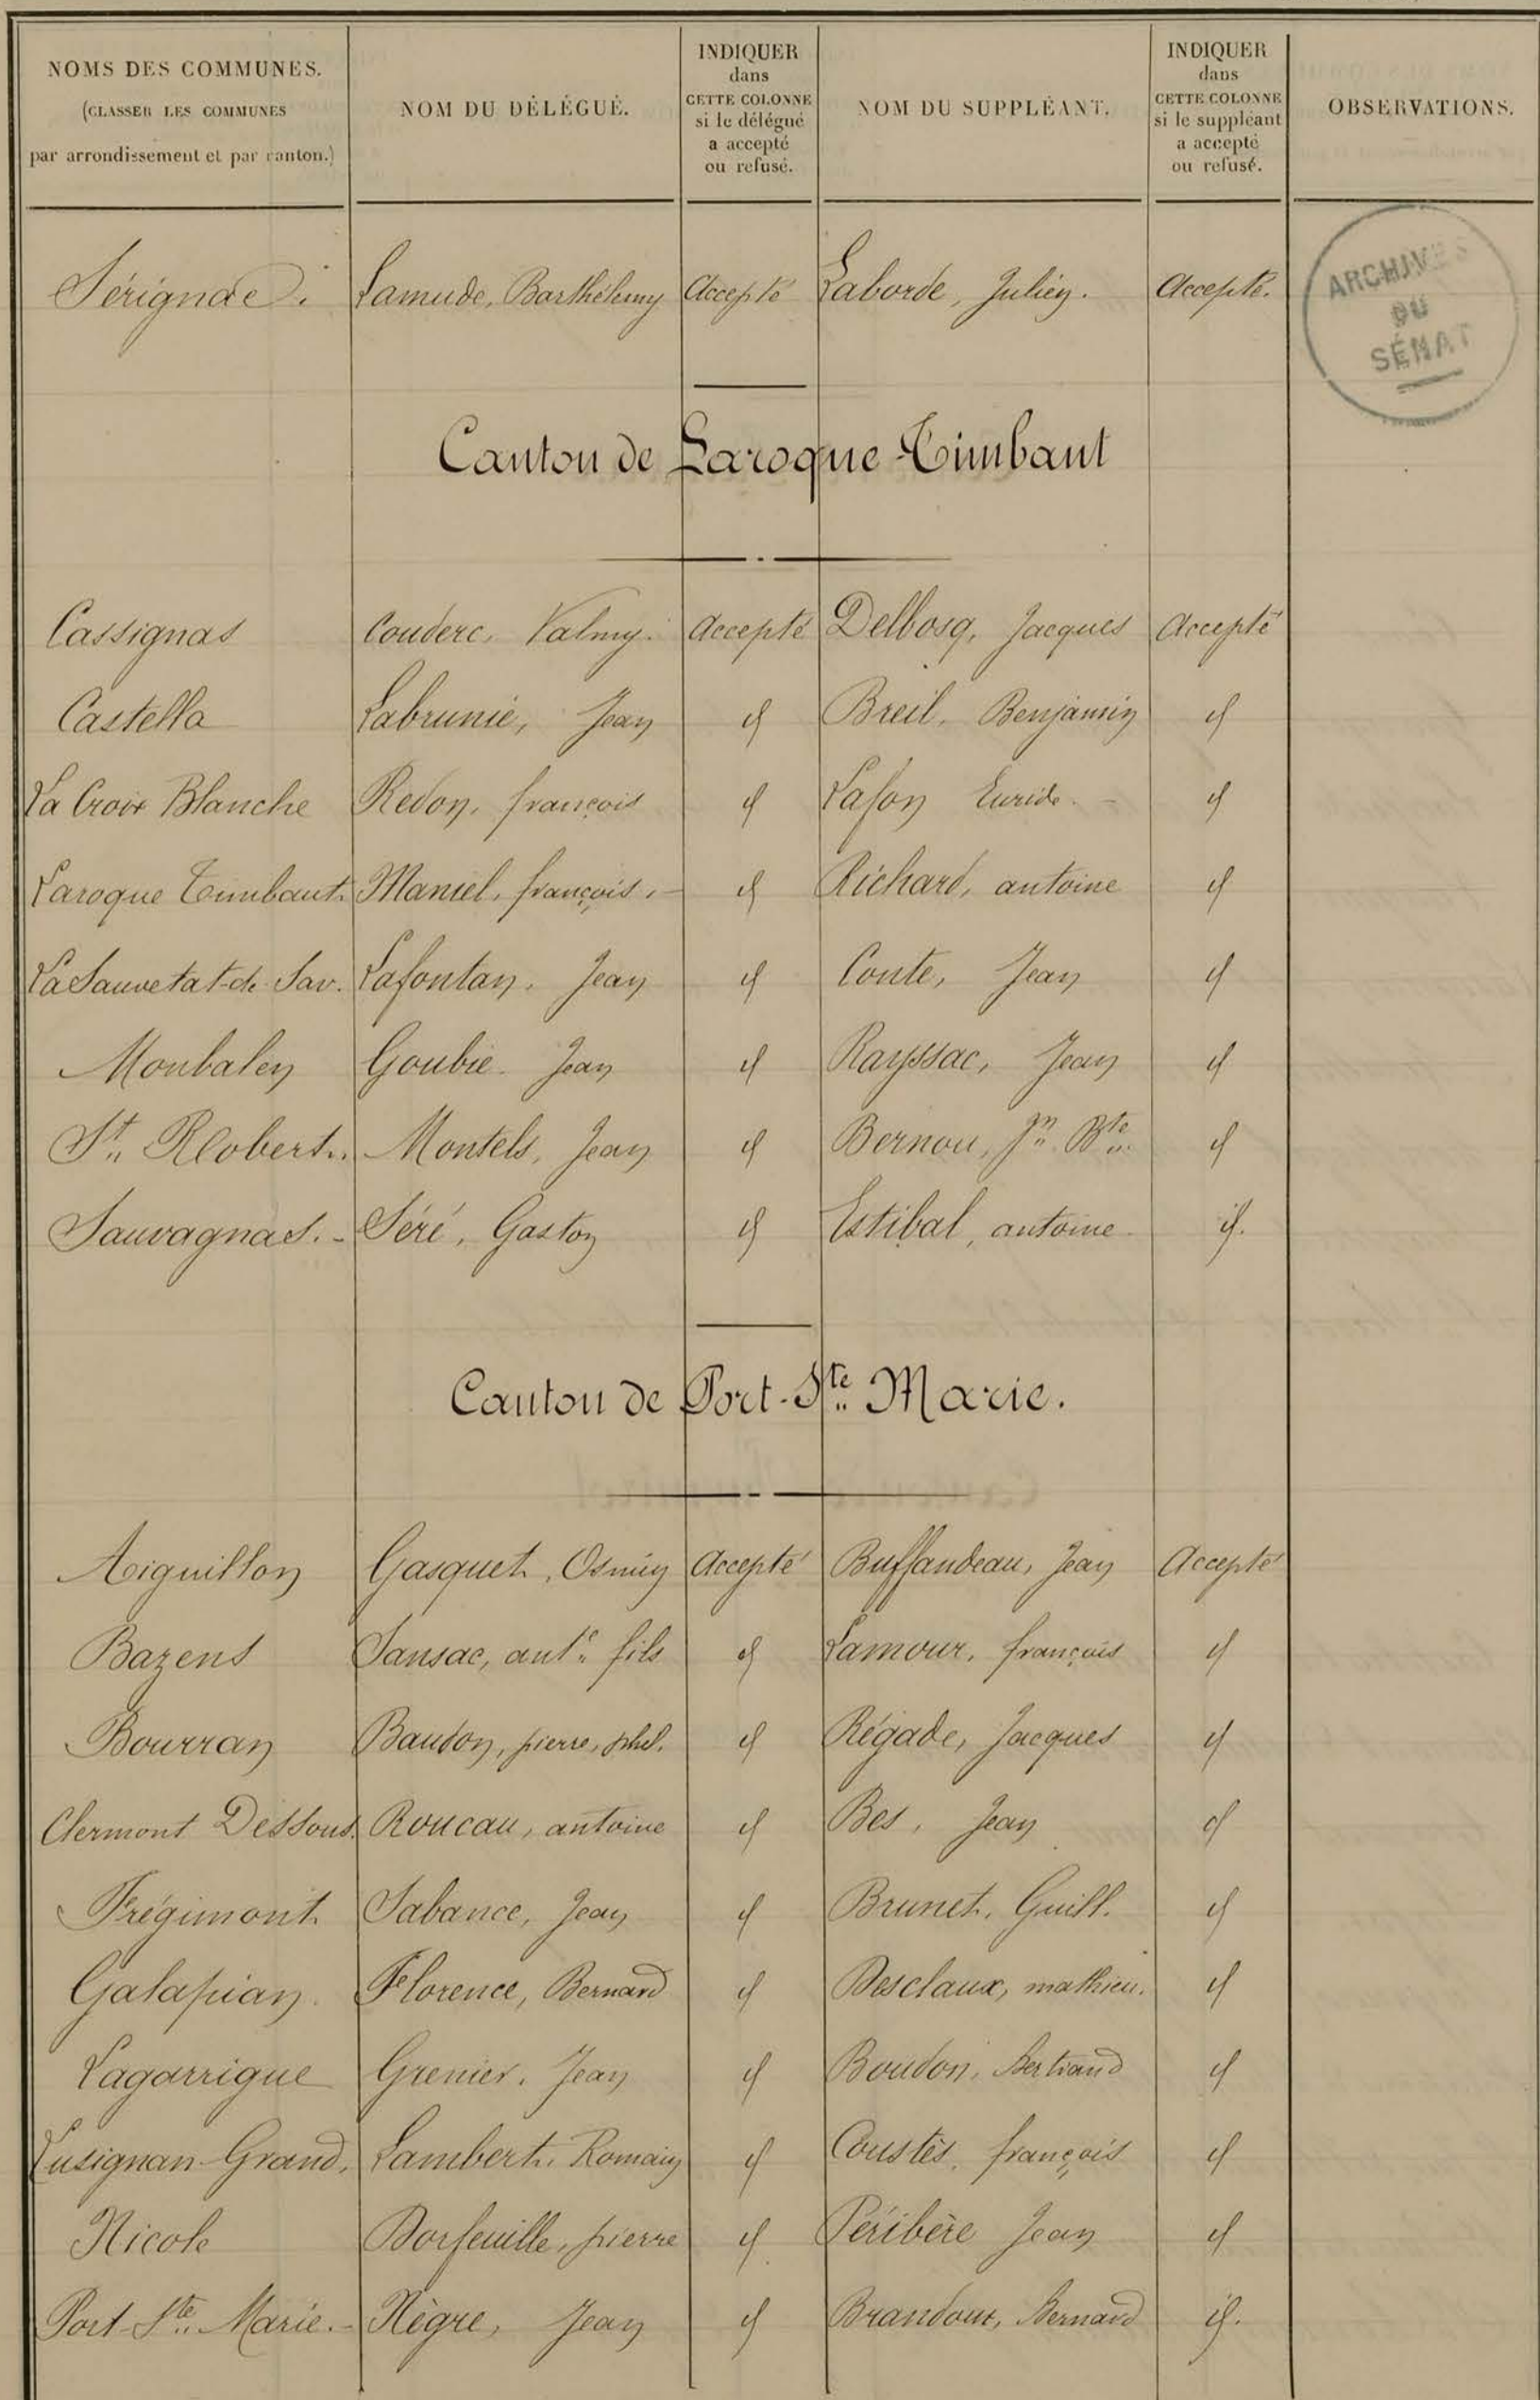 NOMS DES COMMUNES.
(CLASSER LES COMMUNES
par arrondissement et par canton.)
NOM DU DÉLÉGUÉ.
INDIQUER
dans
CETTE COLONNE
si le délégué
a accepté
ou refusé.
NOM DU SUPPLÉANT.
INDIQUER
dans
CETTE COLONNE
si le suppléant
a accepté
ou refusé.
OBSERVATIONS.
Sérignac. Lamude, Barthélemy Accepté Laborde, Julien. Accepté.
ARCHIVES
DU
SÉNAT
Canton de Laroque-Timbaut
Cassignas Couderc, Valmy. Accepté Delbosq, Jacques Accepté
Castella Labrunie, Jean id Breil, Benjamin id
La Croix Blanche Redon, françois id Lafon id
Laroque Timbaut. françois. id Richard, antoine id
La Sauvetat-de-Sav. Lafontan, Jean id Conte, Jean id
Monbalen Goubie. Jean id Rayssac, Jean id
St. Robert. Montels, Jean id Bernou, Jn. Bte. id
Sauvagnas. - Séré, Gaston id Estibal, antoine id.
Canton de Port-Ste. Marie.
Aiguillon Gasquet, Osmin Accepté Buffandeau, Jean Accepté
Bazens Sansac, ante. fils id Lamour, françois id
Bourran Baudon, pierre, id Régade, Jacques id
Clermont Dessous. Roucau, antoine id Bes, Jean id
Frégimont. Sabance, Jean id Brunet, Guill. id
Galapian. Florence, Bernard id Desclaux, mathieu. id
Lagarrigue Grenier. Jean id Boudon, Bertrand id
Lusignan-Grand, Lambert. Romain id Coustès, françois id
Nicole Dorfeuille, pierre id Péribère Jean id
Port-Ste. Marie. - Nègre, Jean id Bernard id.